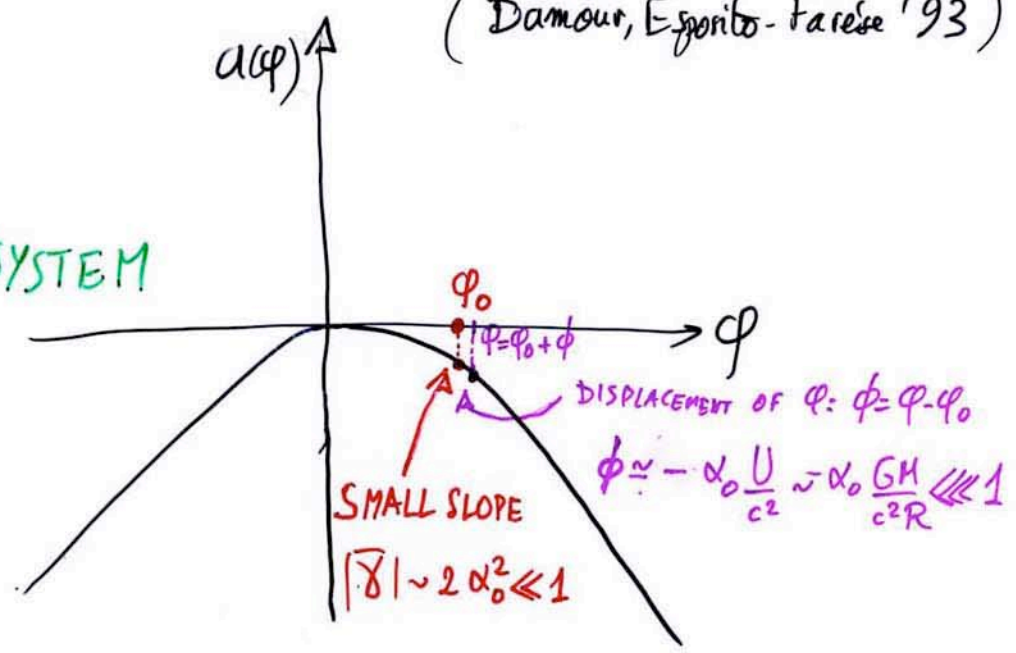 (Damour, Esposito-Farèse '93)
a(φ)
YSTEM
φ₀
φ=φ₀+ϕ
φ
DISPLACEMENT OF φ: ϕ=φ-φ₀
ϕ ≃ - α₀ U/c² ~ α₀ GM/c²R ⋘ 1
SMALL SLOPE
|γ̅| ~ 2 α₀² ≪ 1